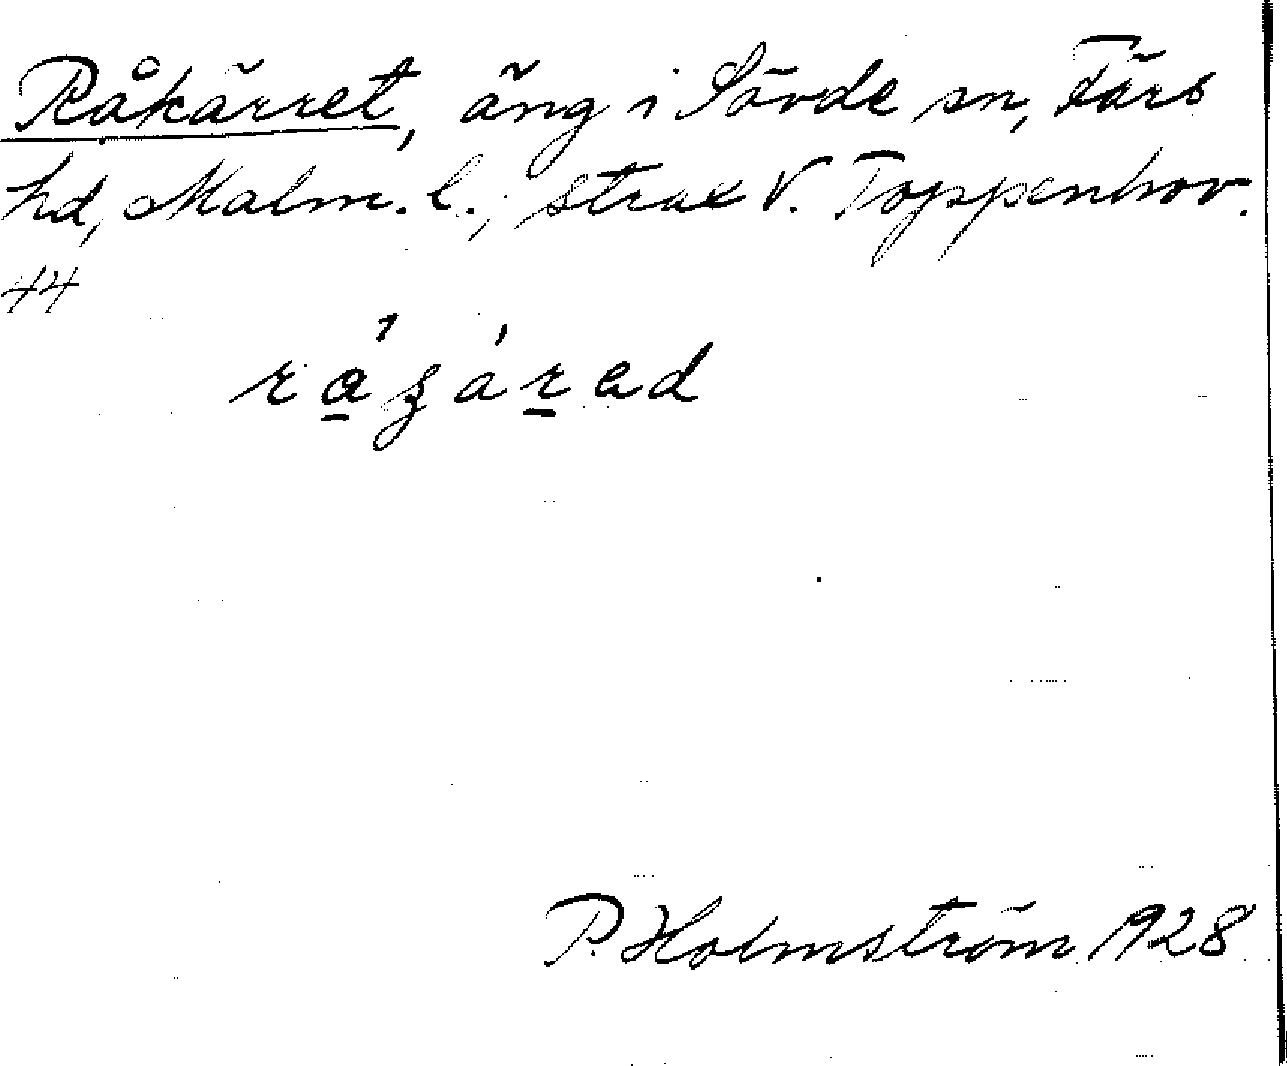 Råkärret, äng i Sövde sn, Färs
hd, Malm. l., strax V. Toppenhov.
44
råʒáred
P. Holmström 1928